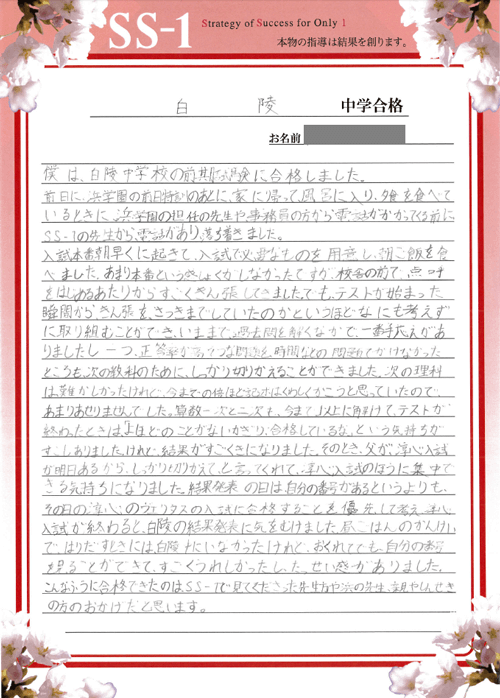 SS-1
Strategy of Success for Only 1
本物の指導は結果を創ります。
白 陵 中学合格
お名前
僕は、白陵中学校の前期試験に合格しました。
前日に、浜学園の前日特訓のあとに、家に帰って、風呂に入り、夕食を食べて
いるときに浜学園の担任の先生や事務員の方から電話がかかってくる前に
SS-1の先生から電話があり、落ち着きました。
入試本番朝早くに起きて、入試で必要なものを用意し、朝ご飯を食
べました。あまり本番という気しょくがしなかったですが、校舎の前で、点呼
をはじめるあたりからすごくきん張してきました。でも、テストが始まった
瞬間からきん張を、さっきまでしていたのかというほどなにも考えず
に取り組むことができ、いままで、過去問を解くなかで、一番手応えがあ
りました
時間などの問題でかけなかった
ところも、次の教科のために、しっかり切りかえることができました。次の理科
は難かしかったけれど、今までの倍ほど
と思っていたので、
あまりあせりませんでした。算数一次と二次も、今まで以上に解けて、テストが
終わったときは、よほどのことがないかぎり、合格しているな、という気持ちが
すこしありましたけれど、結果がすごくきになりました。そのとき、父が、淳心入試
が明日あるから、しっかり切りかえて、と言ってくれて、淳心入試のほうに集中で
きる気持ちになりました。結果発表の日は自分の番号があるというよりも、
その日の、淳心のヴェリタスの入試に合格することを優先して考え、淳心
入試が終わると、白陵の結果発表に気をむけました。昼ごはんのかんけい
で、はりだすときには白陵にいなかったけれど、おくれてでも、自分の番号
を見ることができて、すごくうれしかったし、たっせい感がありました。
こんなふうに合格できたのはSS-1で見てくださった先生方や浜の先生、親やしんせき
の方のおかげだと思います。